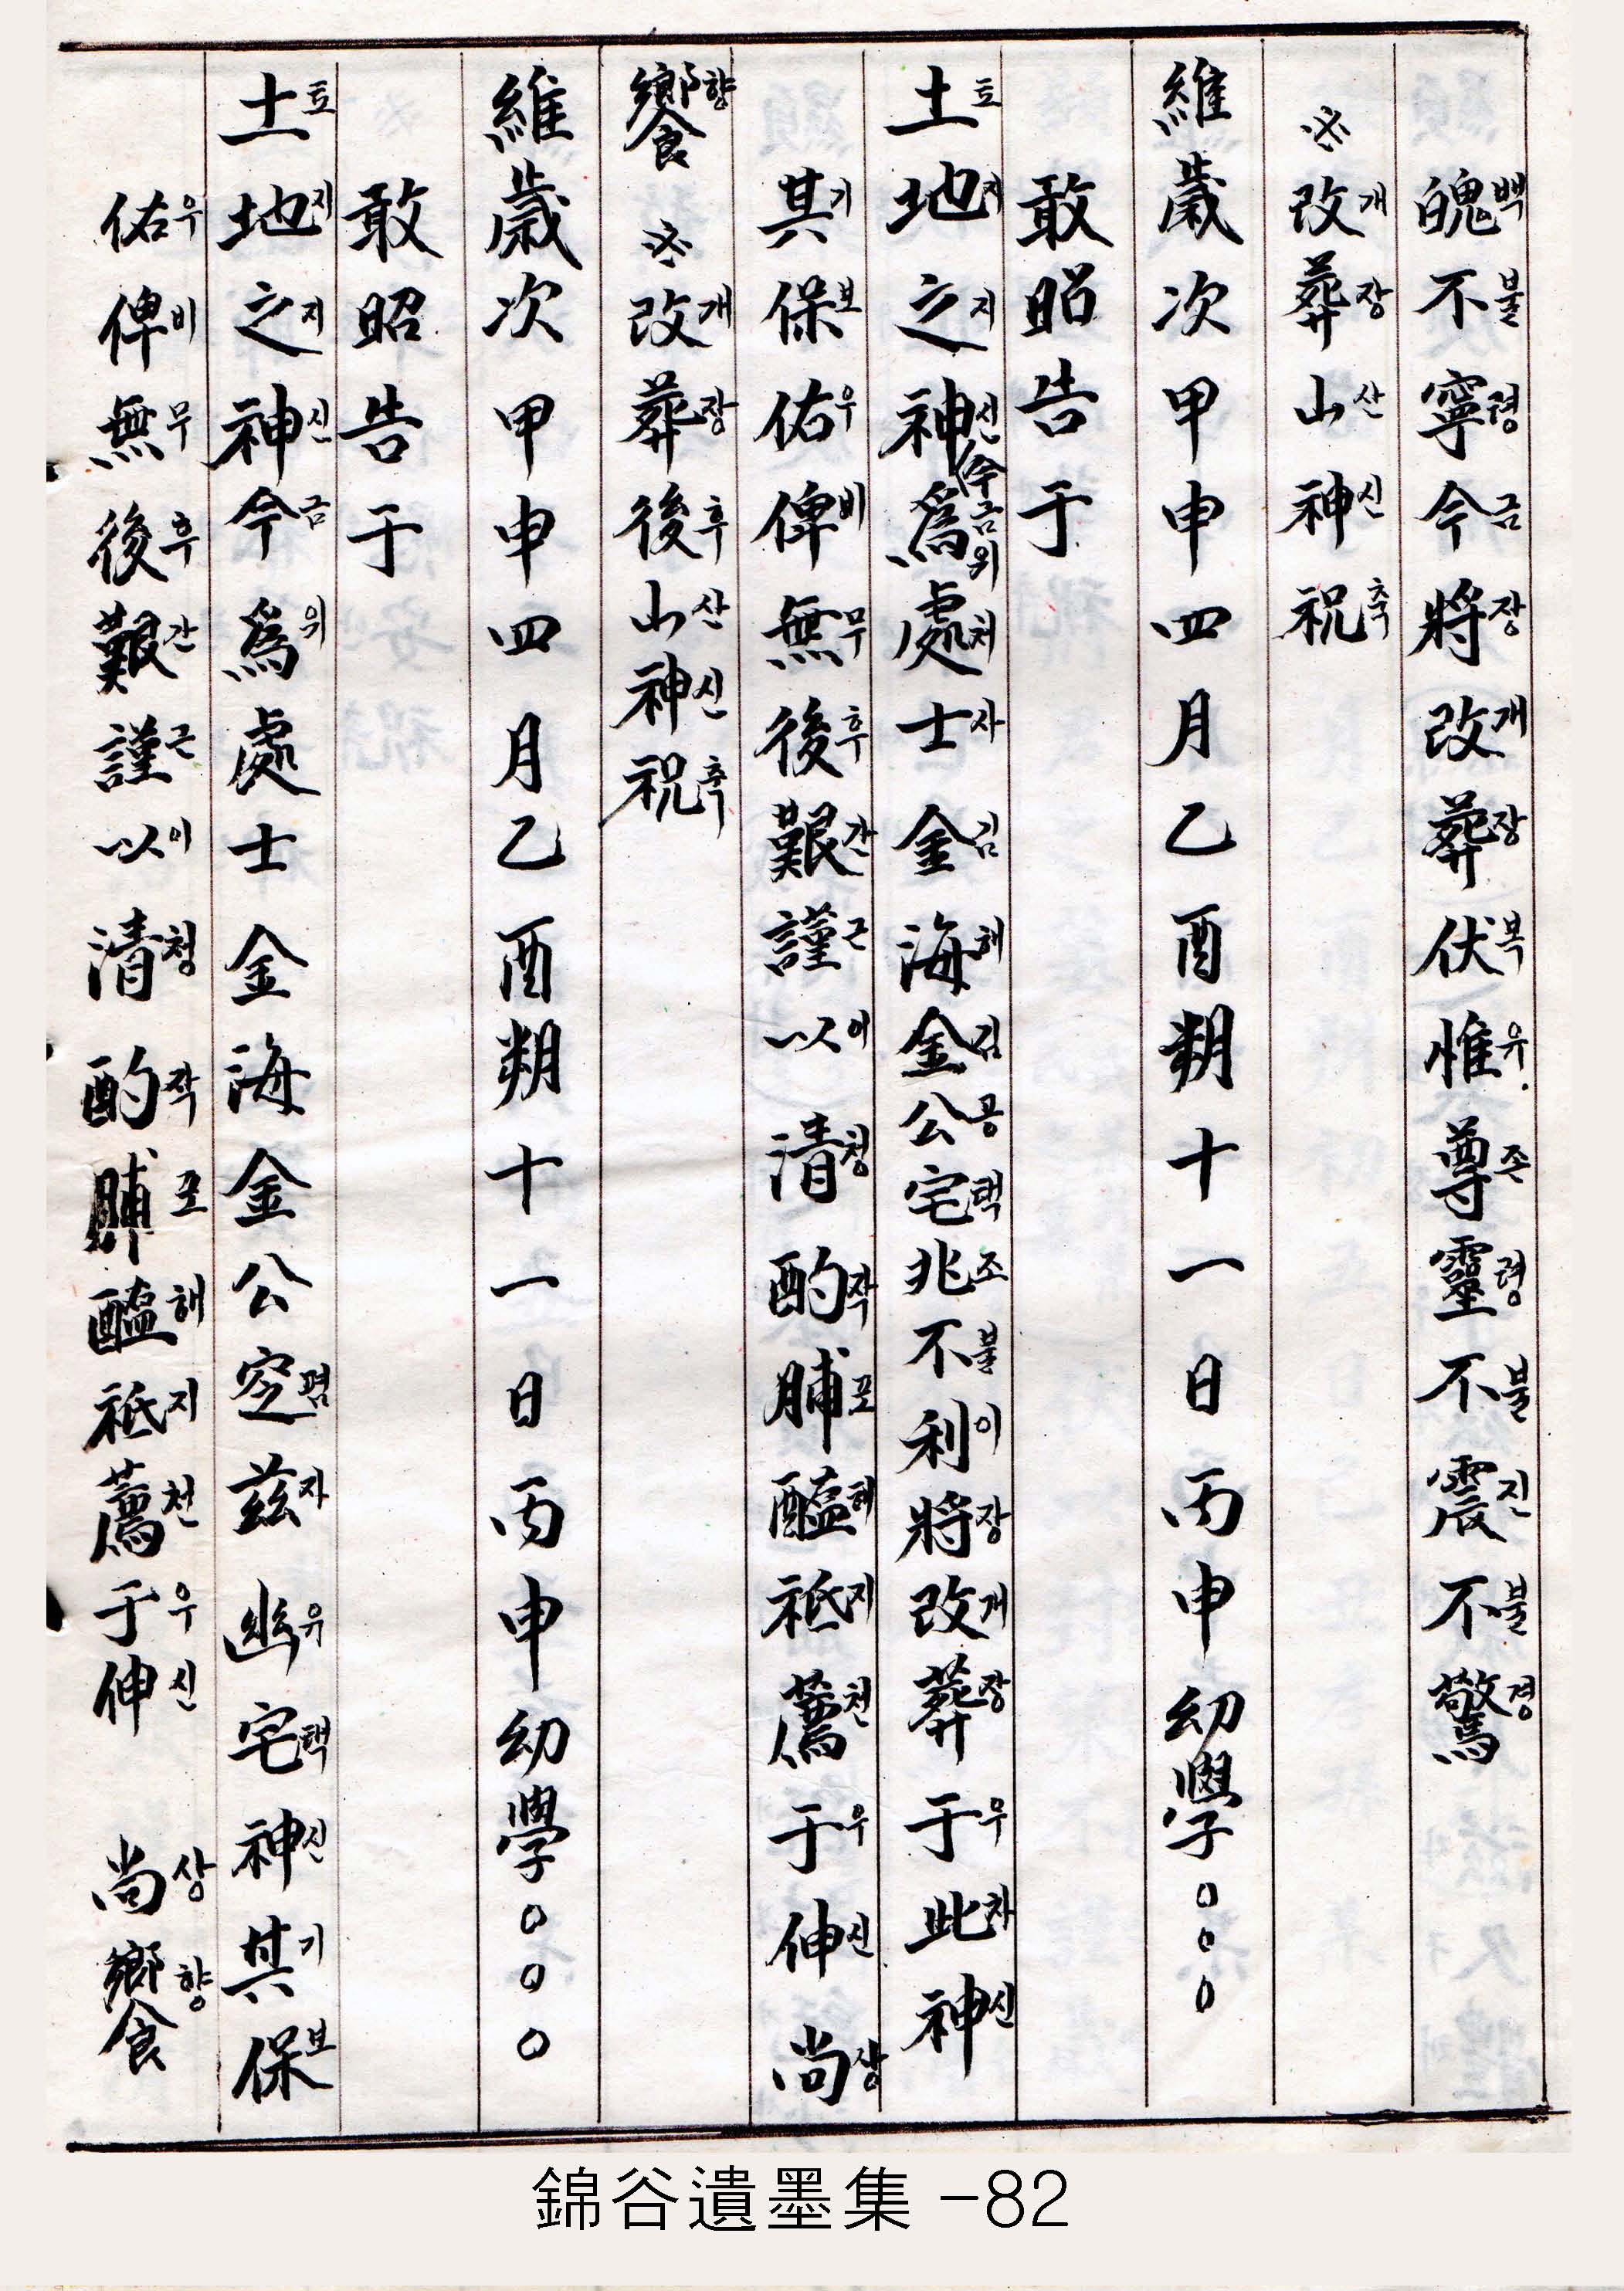 魄백不불寧령今금將장改개葬장伏복惟유尊존靈령不불震진不불驚경
※改개葬장山산神신祝축
維歲次甲申四月乙酉朔十一日丙申幼學○○○
敢昭告于
土토地지之지神신今금爲위處처士사金김海해金김公공宅택兆조不불利이將장改개葬장于우此차神신
其기保보佑우俾비無무後후艱간謹근以이淸청酌작脯포醢해祗지薦천于우伸신尙상
饗향 ※改개葬장後후山산神신祝축
維歲次甲申四月乙酉朔十一日丙申幼學○○○
敢昭告于
土토地지之지神신今금爲위處士金海金公窆폄玆자幽유宅택神신其기保보
佑우俾비無무後후艱간謹근以이淸청酌작脯포醢해祗지薦천于우伸신 尙상饗향
錦谷遺墨集 -82